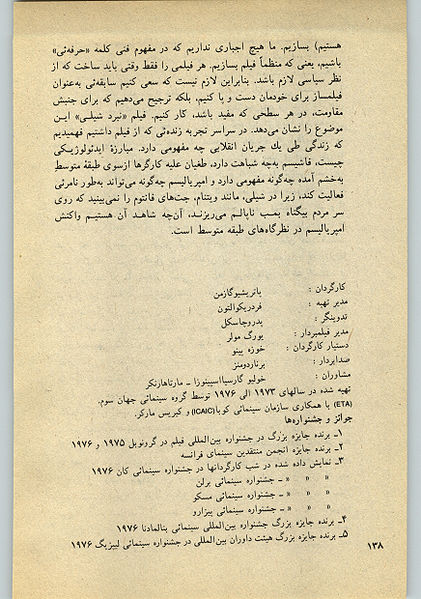 هستیم) بسازیم. ما هیچ اجباری نداریم که در مفهوم فنی کلمه «حرفه‌ئی»
باشیم، یعنی که منظماً فیلم بسازیم. هر فیلمی را فقط وقتی باید ساخت که از
نظر سیاسی لازم باشد. بنابراین لازم نیست که سعی کنیم سابقه‌ئی به‌عنوان
فیلمساز برای خودمان دست و پا کنیم، بلکه ترجیح می‌دهیم که برای جنبش
مقاومت، در هر سطحی که مفید باشد، کار کنیم. فیلم «نبرد شیلی» این
موضوع را نشان می‌دهد. در سراسر تجربه زنده‌ئی که از فیلم داشتیم فهمیدیم
که زندگی طی یك جریان انقلابی چه مفهومی دارد. مبارزهٔ ایدئولوژیکی
چیست، فاشیسم به‌چه شباهت دارد، طغیان علیه کارگرها ازسوی طبقهٔ متوسط
به‌خشم آمده چه‌گونه مفهومی دارد و امپریالیسم چه‌گونه می‌تواند به‌طور نامرئی
فعالیت کند، زیرا در شیلی، مانند ویتنام، جت‌های فانتوم را نمی‌بینید که روی
سر مردم بیگناه بمب ناپالم می‌ریزند، آن‌چه شاهد آن هستیم واکنش
امپریالیسم در نظرگاه‌های طبقه متوسط است.
کارگردان : پاتریشیوگازمن
مدیر تهیه : فردریکوالتون
تدوینگر : پدروچاسکل
مدیر فیلمبردار : یورگ مولر
دستیار کارگردان : خوزه پینو
صدابردار : برناردومنز
مشاوران : خولیو گارسیااسپینوزا ــ مارتاهارنکر
تهیه شده در سالهای ۱۹۷۳ الی ۱۹۷۶ توسط گروه سینمائی جهان سوم.
(ETA) با همکاری سازمان سینمائی کوبا(ICAIC) و کیریس مارکر.
جوائز و جشنواره‌ها
۱ــ برنده جایزه بزرگ در جشنواره بین‌المللی فیلم در گرونوبل ۱۹۷۵ و ۱۹۷۶
۲ــ برنده جایزه انجمن منتقدین سینمای فرانسه
۳ــ نمایش داده شده در شب کارگردانها در جشنواره سینمائی کان ۱۹۷۶
» » » ــ جشنواره سینمائی برلن
» » » ــ جشنواره سینمائی مسکو
» » » ــ جشنواره سینمائی پیزارو
۴ــ برنده جایزه بزرگ جشنواره بین‌المللی سینمائی بنالمادنا ۱۹۷۶
۵ــ برنده جایزه بزرگ هیئت داوران بین‌المللی در جشنواره سینمائی لیپزیگ ۱۹۷۶
۱۳۸